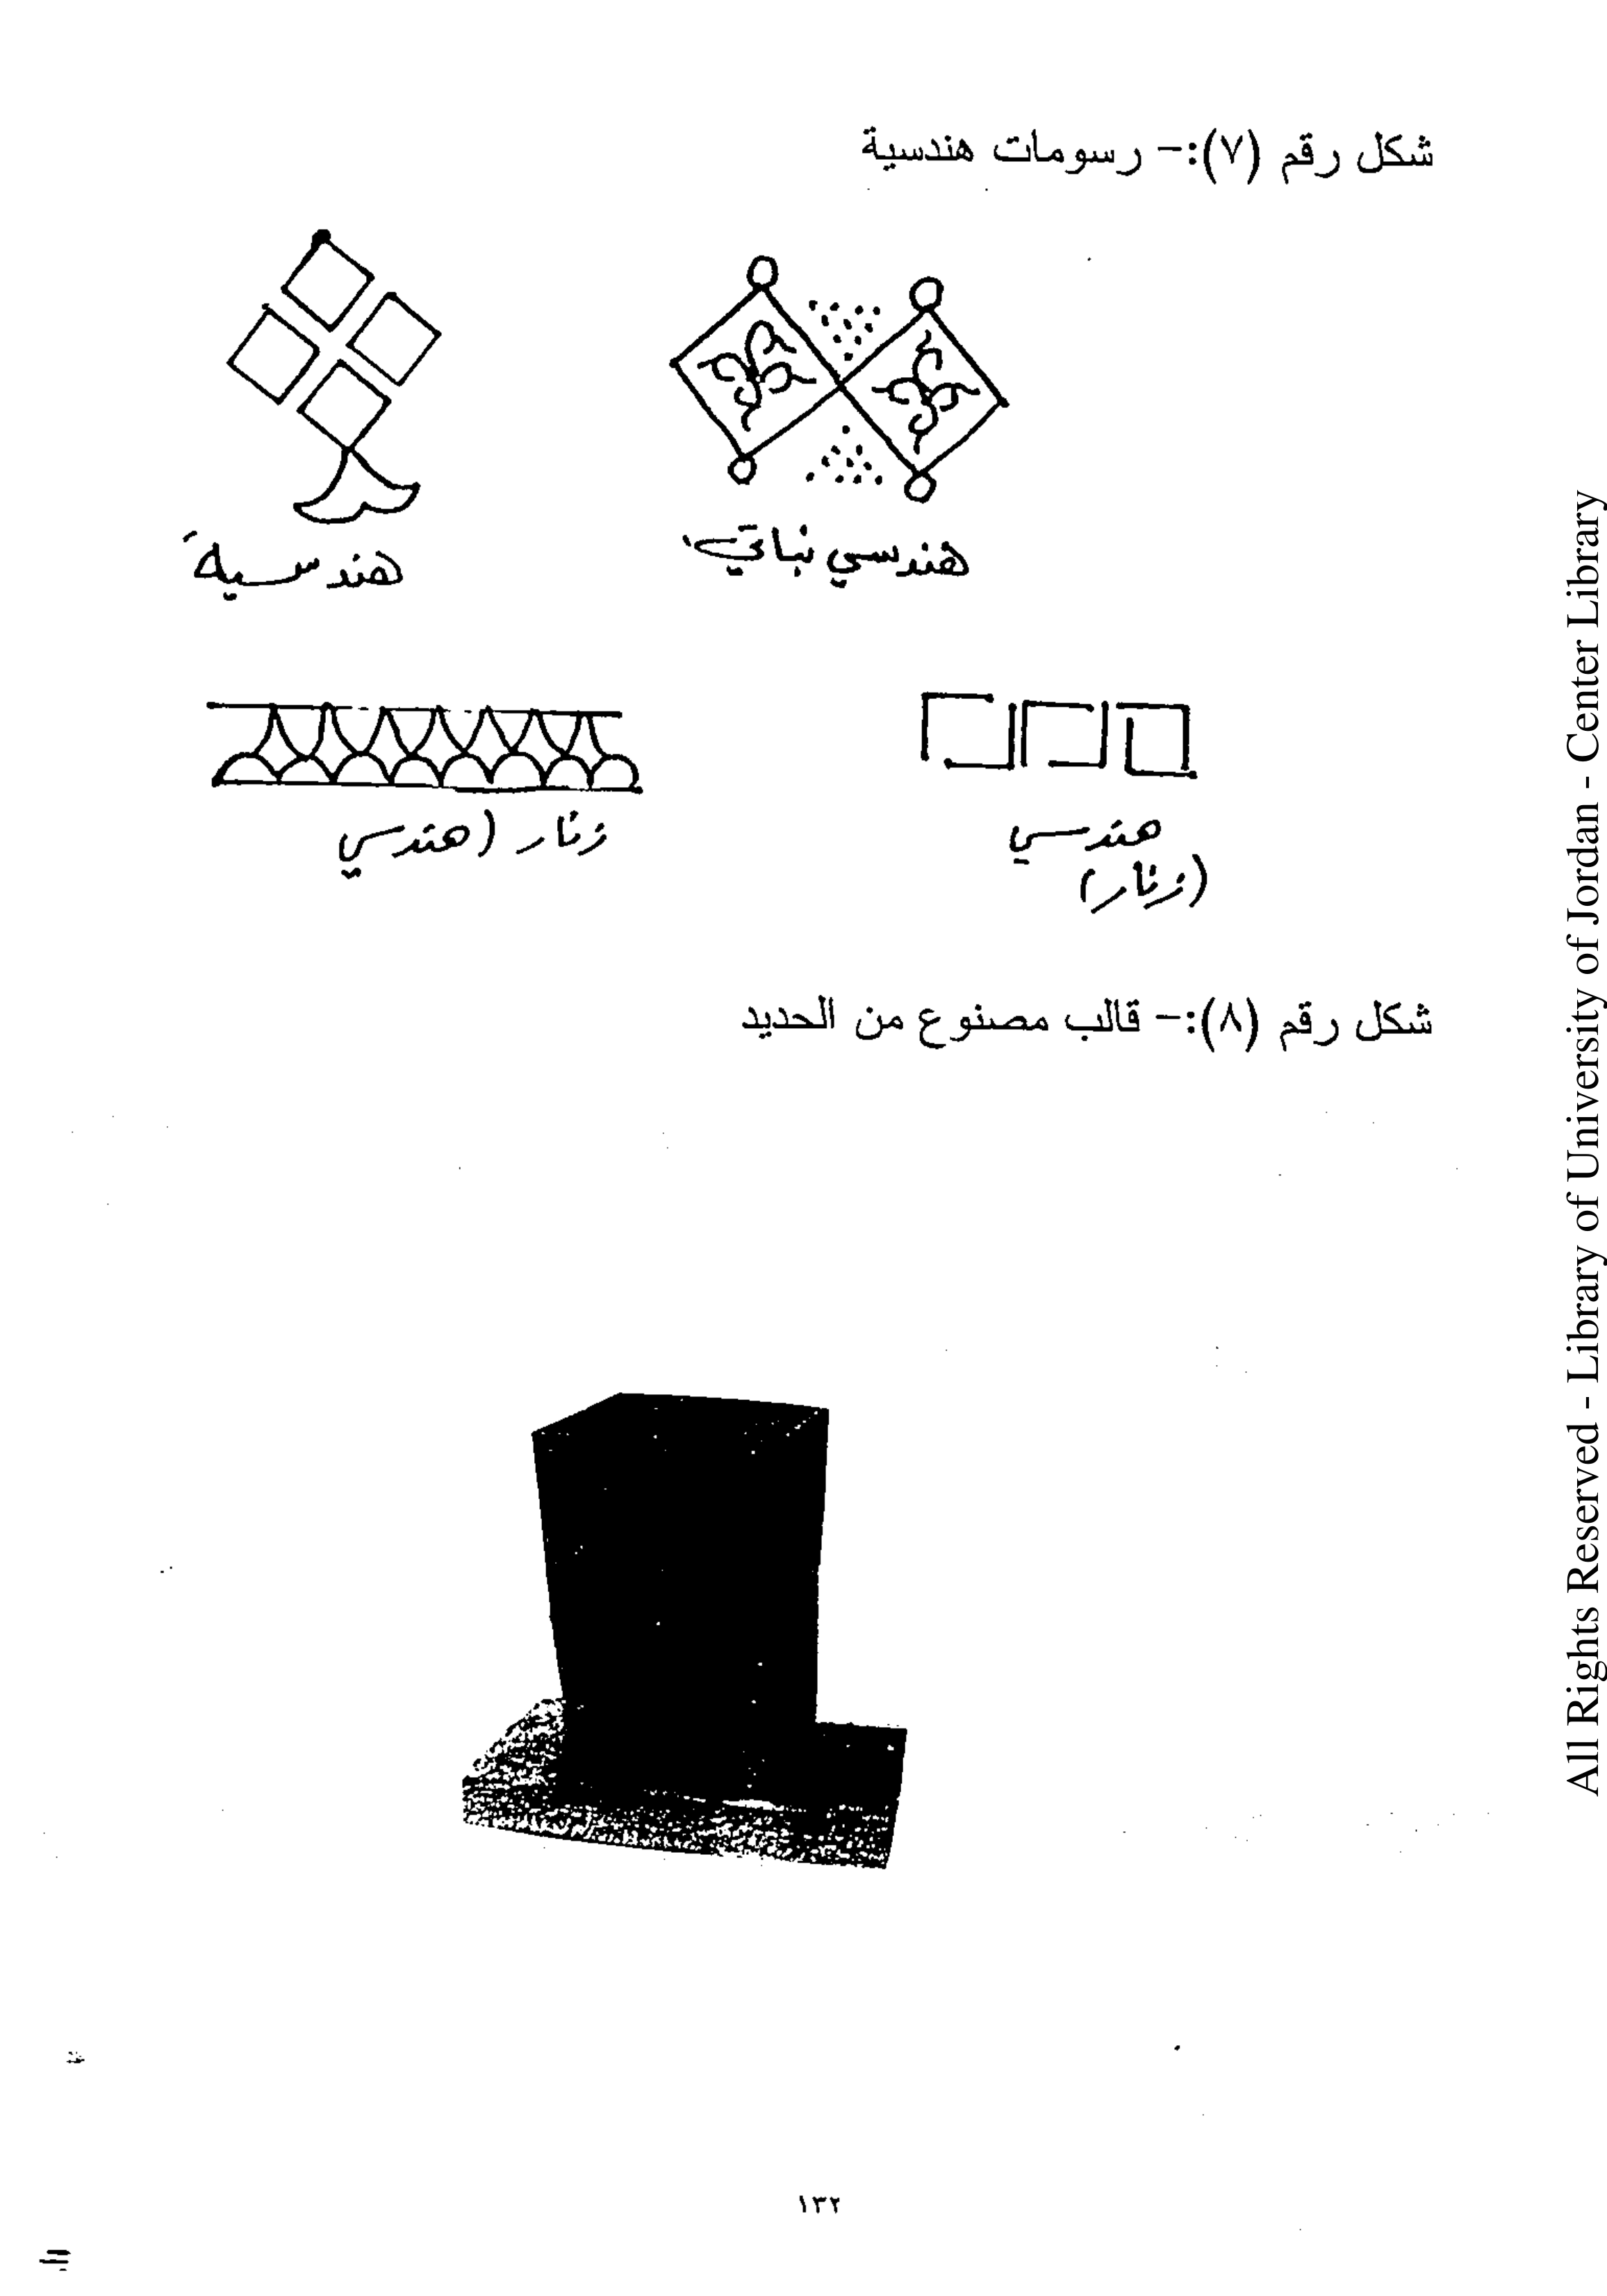 شكل رقم (٧):- رسومات هندسية
هندسي نباتي
هندسية
هندسي
(زنار)
زنار (هندسي
شكل رقم (٨):- قالب مصنوع من الحديد
١٣٢
All Rights Reserved - Library of University of Jordan - Center Library